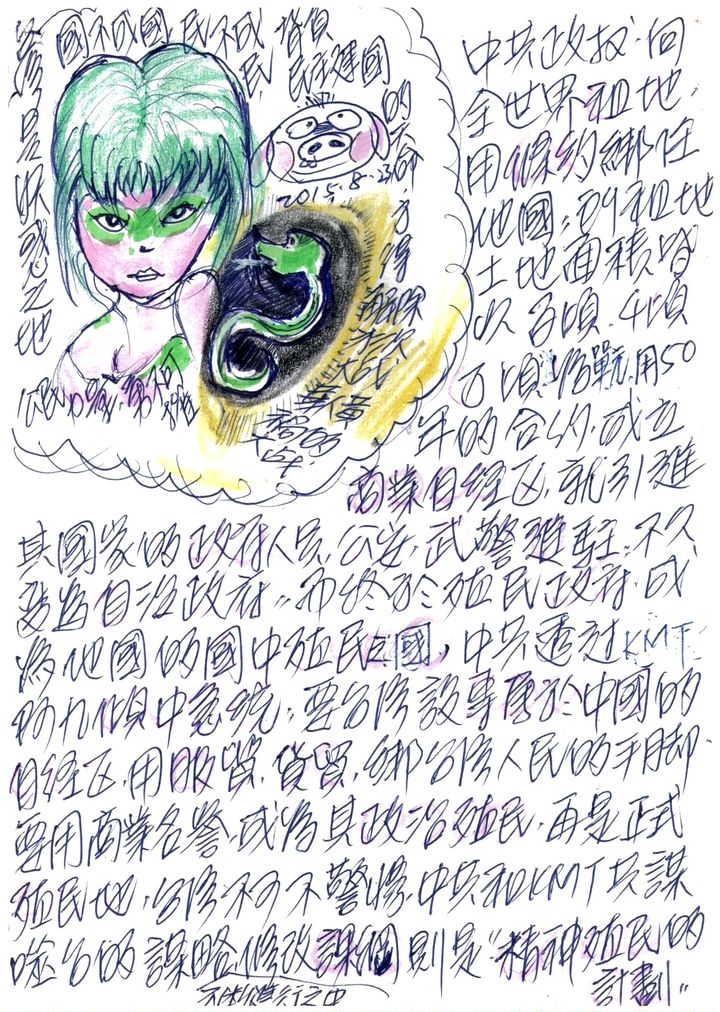 台灣是妖惑之地
國不成國 民不成民 皆負民主建國的天命
2015.8.23
中共政权．向
全世界租地．
用條約綁住
他國，列租地
土地面積皆
以百頃．千頃
万頃為戰，用50
年的合約．成立
商業自经区．就引進
其國家的政府人員．公安．武警進駐．不久
變為自治政府，而终於殖民政府．成
為他國的國中殖民之國，中共透过KMT
馬九傾中急統，要台灣設專屬於中國的
自经区．用服貿．貨貿．綁台灣人民的手脚．
要用商業名譽．成為其政治殖民．再是正式
殖民地．台灣不可不警惕．中共和KMT共謀
吃台的謀略．修改課綱則是"精神殖民的
計劃"
不斷進行之中